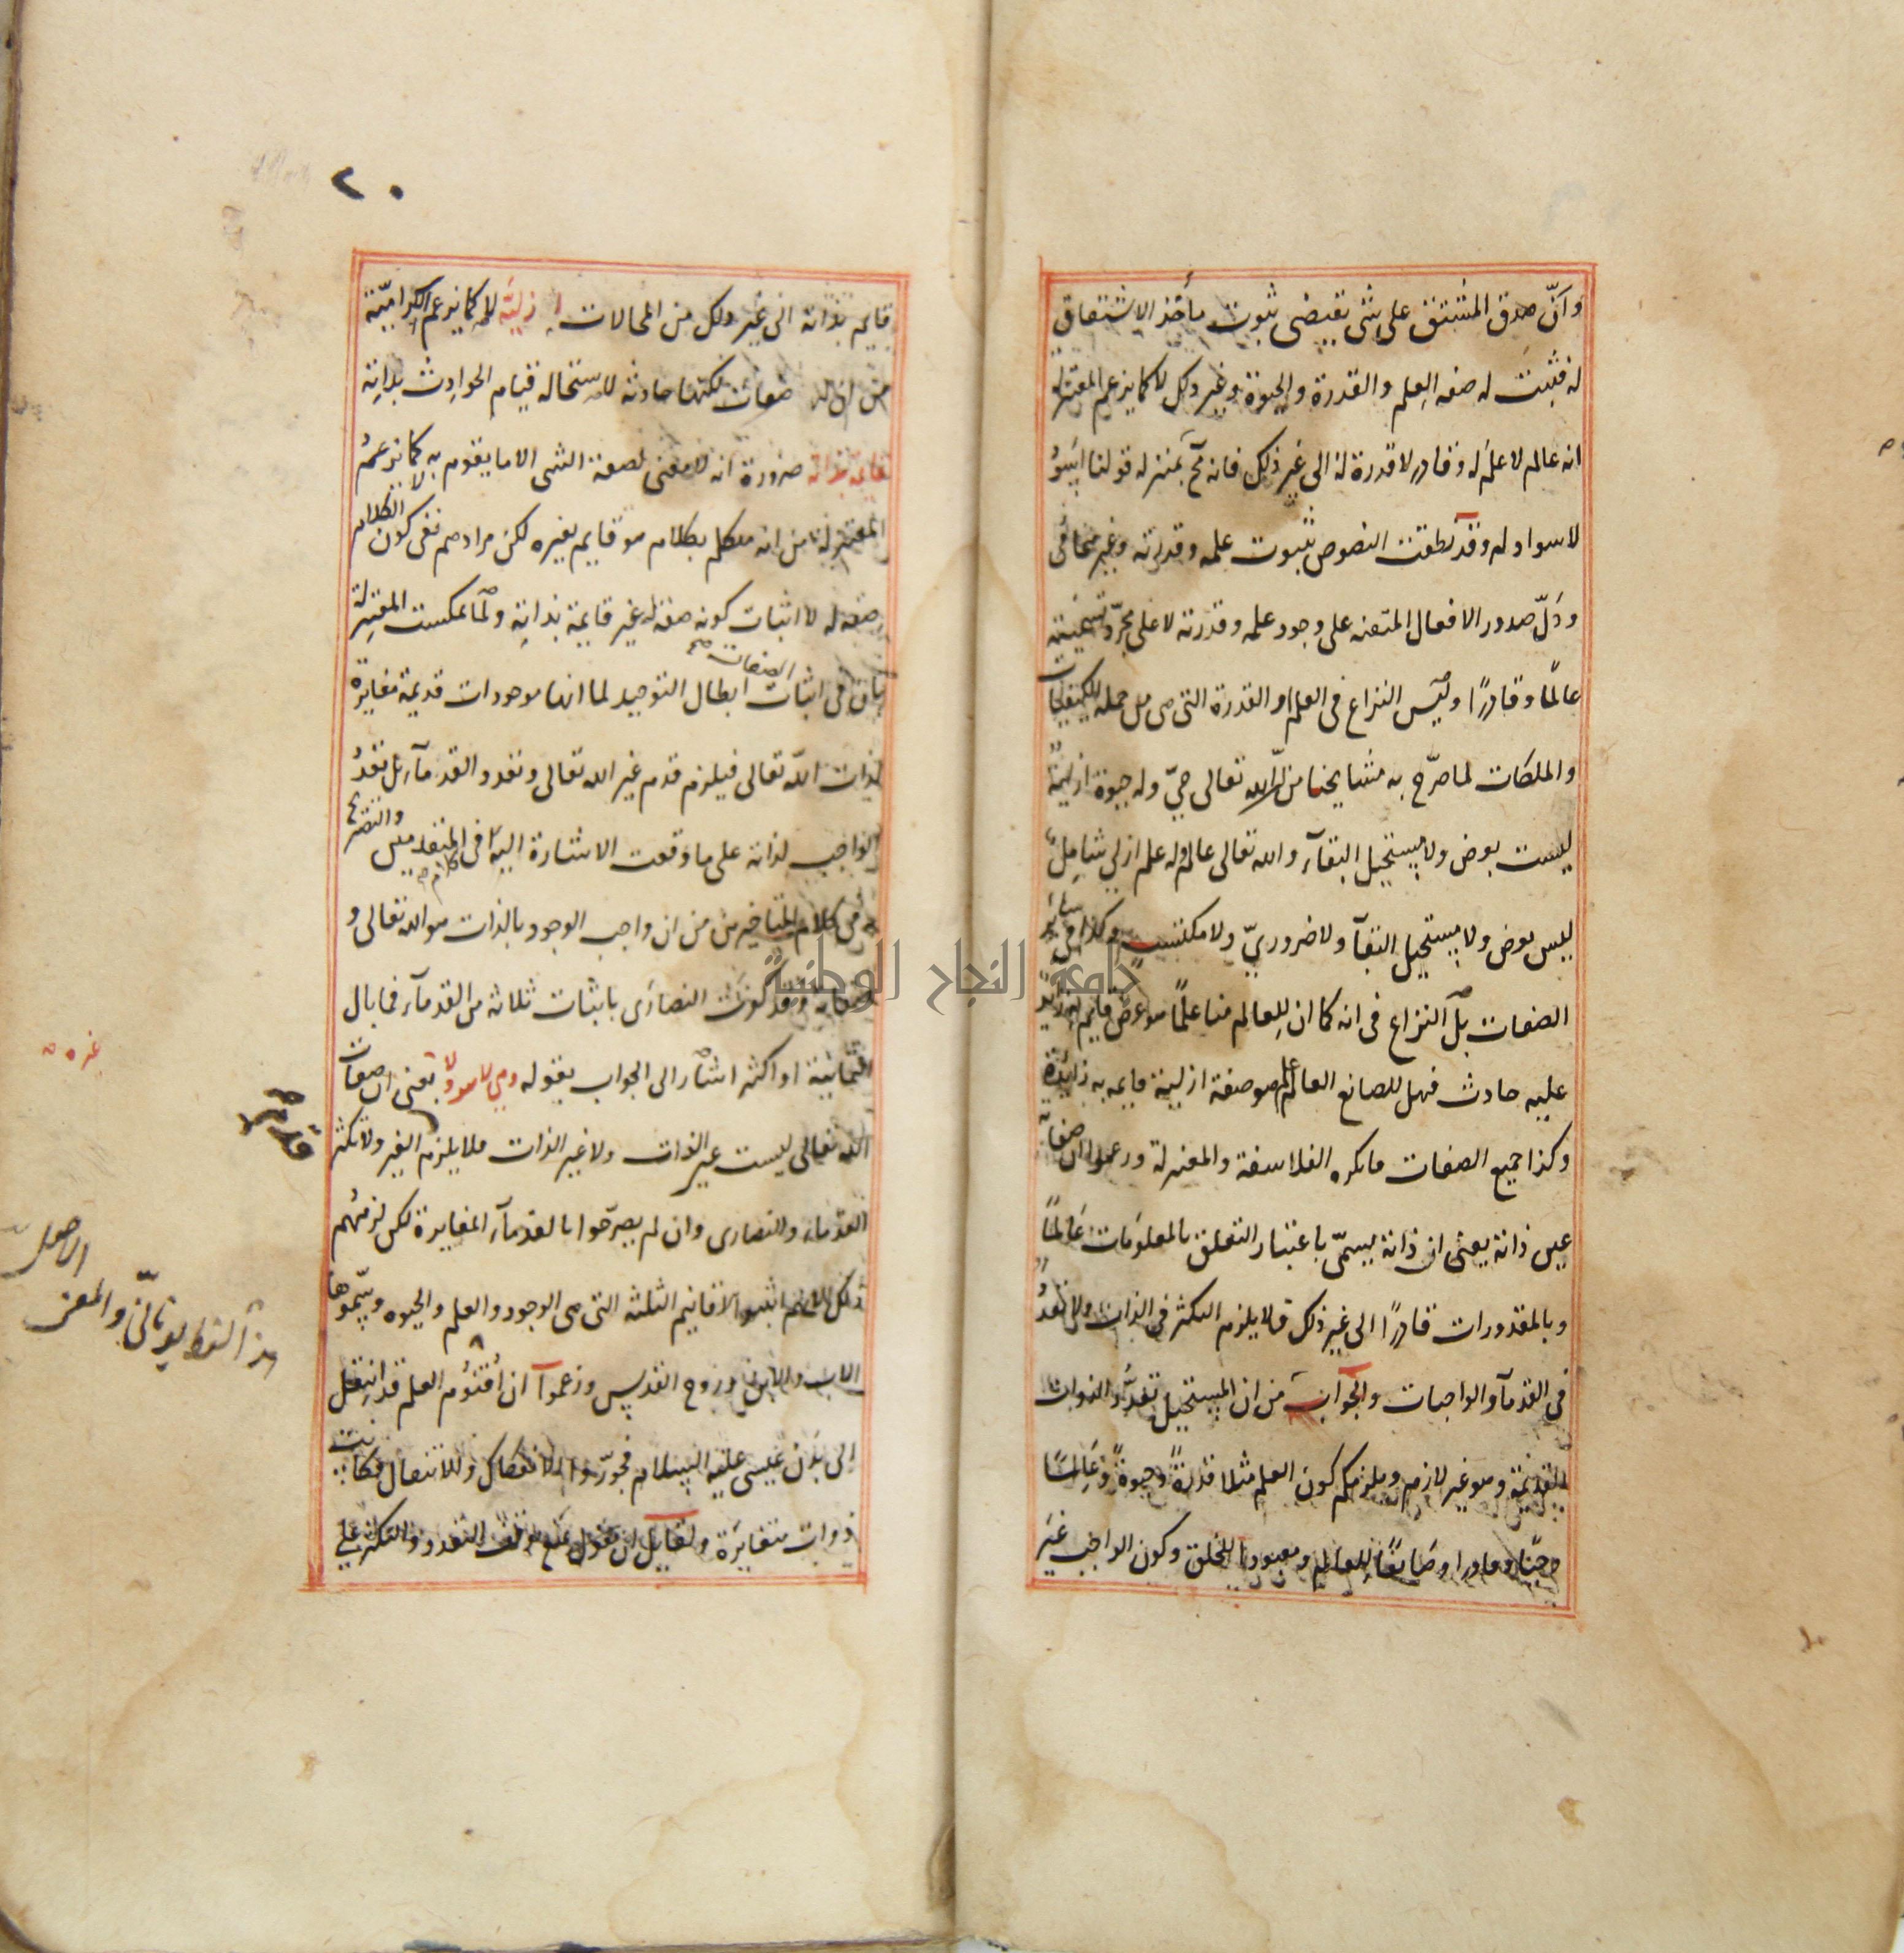 وانّ صدق المشتق على شئ يقتضى ثبوت مأخذ الاشتقاق
له فثبت له صفه العلم والقدرة والحيوة وغير ذلك لا كما يزعم المعتزلة
انه عالم لا علم له وقادر لا قدرة له الى غير ذلك فانه مح بمنزله قولنا اسود
لا سواد له وقد نطقت النصوص بثبوت علمه وقدرته وغيرهما
ودلّ صدور الافعال المتقنه على وجود علمه وقدرته لا على مجرد تسميته
عالمًا وقادرًا وليس النزاع فى العلم والقدرة التى هى من جمله الكيفيات
والملكات لما صرّح به مشايخنا من ان الله تعالى حىّ وله حيوة ازلية
ليست بعرض ولا يستحيل البقآء والله تعالى عالم وله علم ازلى شامل
ليس بعرض ولا يستحيل البقآ ولا ضرورىّ ولا مكتسب وكذا فى سائر
الصفات بل النزاع فى انه كما ان للعالم منا علمًا هو عرض قايم به زايد
عليه حادث فهل للصانع العالم علم هو صفة ازلية قايمه به زايدة
وكذا جميع الصفات فانكره الفلاسفة والمعتزلة وزعموا ان صفاته
عين ذاته يعنى ان ذاته يسمّى باعتبار التعلق بالمعلومات عالمًا
وبالمقدورات قادرًا الى غير ذلك فلا يلزم التكثر فى الذات ولا تعدد
فى القدمآ والواجبات والجواب من ان المستحيل تعدد الذوات
القديمة وهو غير لازم ويلزمكم كون العلم مثلا قدرةً وحيوةً وعالمًا
وحيًّا وقادرا وصانعًا للعالم ومعبودا للخلق وكون الواجب غير
٢٠
قايم بذاته الى غير ذلك من المحالات ازلية لا كما يزعم الكرامية
من ان له صفات لكنها حادثه لاستحاله قيام الحوادث بذاته
قايمة بذاته ضرورة انه لا معنى لصفة الشى الا ما يقوم به لا كما يزعم
المعتزلة من انه متكلم بكلام هو قايم بغيره لكن مرادهم نفى كون الكلام
صفه له لا اثبات كونه صفة له غير قايمة بذاته ولما تمسكت المعتزلة
بان فى اثبات الصفات ابطال التوحيد لما انها موجودات قديمة مغايرة
لذات الله تعالى فيلزم قدم غير الله تعالى وتعدد القدمآء بل تعدد
الواجب لذاته على ما وقعت الاشارة اليه فى كلام المتقدمين والتصريح
فى كلام المتاخرين من ان واجب الوجود بالذات هو الله تعالى و
صفاته وقد كفرت النصارى باثبات ثلاثه من القدمآء فما بال
الثمانية او اكثر اشار الى الجواب بقوله وهى لا هو ولا يعنى ان صفات
الله تعالى ليست عين الذات ولا غير الذات فلا يلزم قدم الغير ولا تكثر
القدماء والنصارى وان لم يصرّحوا بالقدمآء المغايرة لكن لزمهم
ذلك لانهم اثبتوا الاقانيم الثلثه التى هى الوجود والعلم والحيوه وسمّوها
الاب والابن وروح القدس وزعموا ان اقنوم العلم قد انتقل
الى بدن عيسى عليه السلام فجوّزوا الانفكاك والانتقال فكانت
ذوات متغايرة ولقايل ان يقول يمنع توقف التعدد والتكثر على
غيره